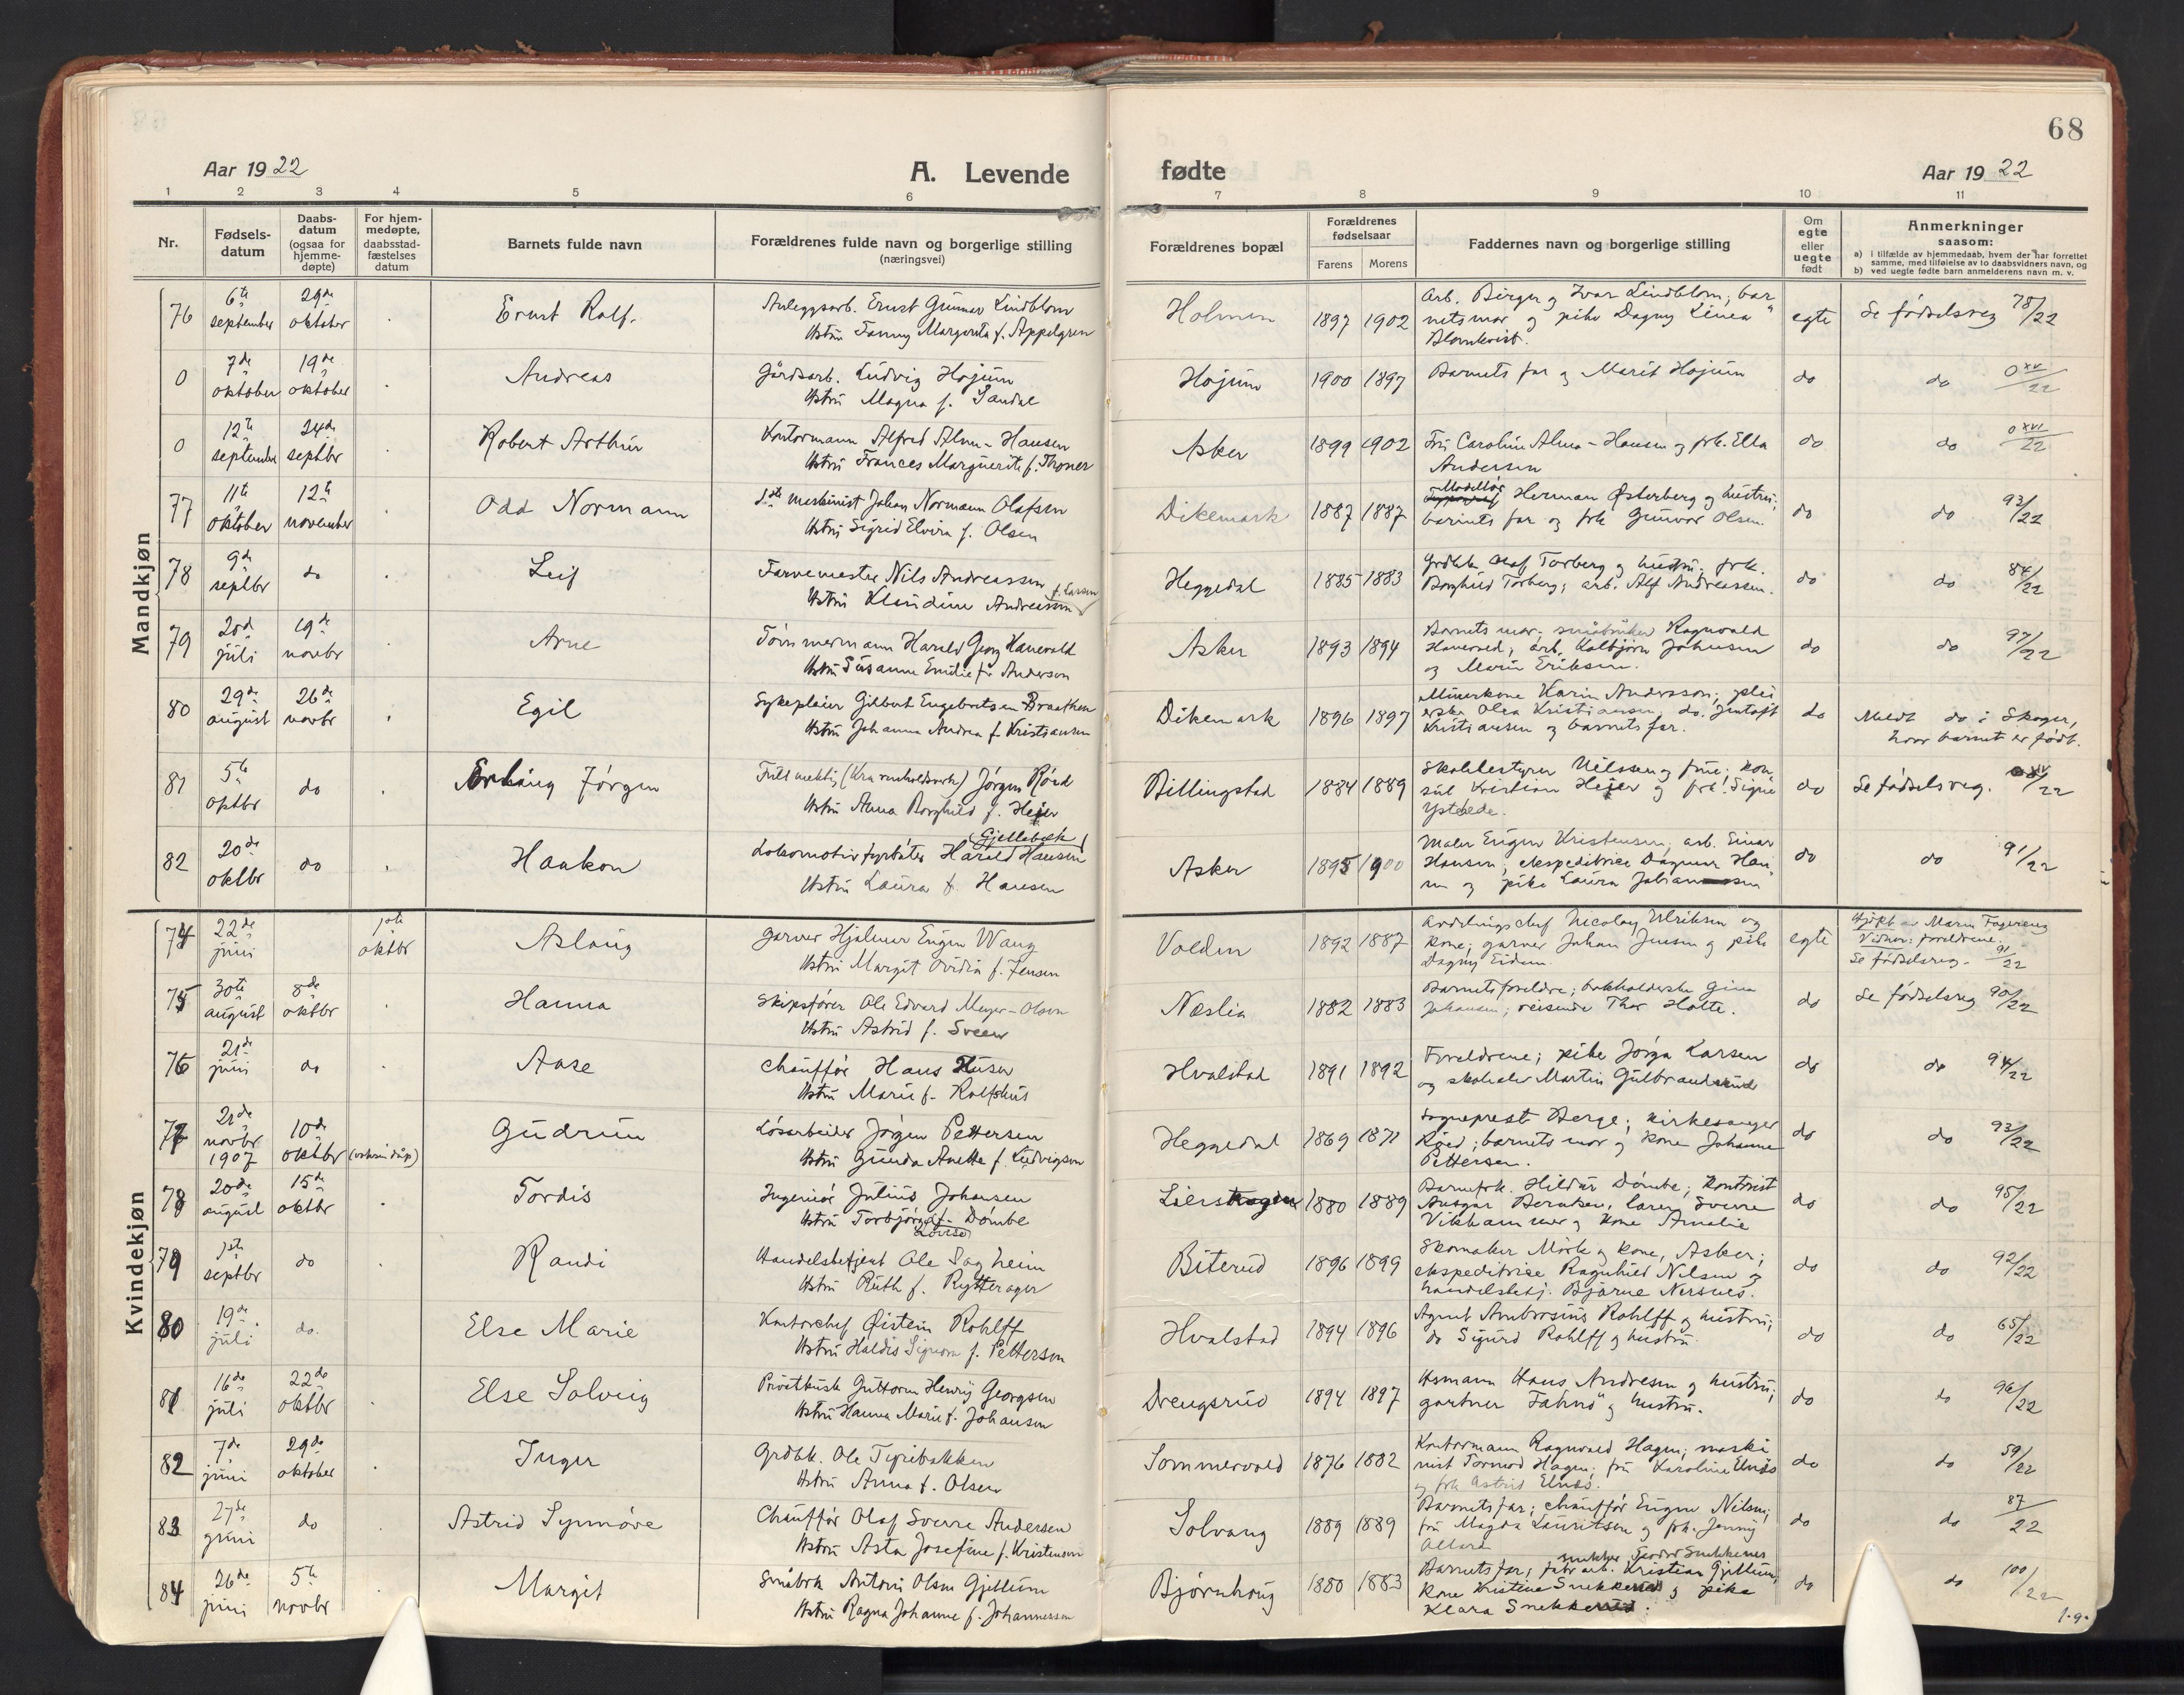 68
Aar 1922
A. Levende
fødte
Aar 1922
1 2 3 4 5 6 7 8 9 10 11
Nr.
Fødsels-
datum
Daabs-
datum
(ogsaa for
hjemme-
døpte)
For hjem-
medøpte,
daabsstad-
fæstelses
datum
Barnets fulde navn
Forældrenes fulde navn og borgerlige stilling
(næringsvei)
Forældrenes bopæl
Forældrenes
fødselsaar
Farens Morens
Faddernes navn og borgerlige stilling
Om
egte
eller
uegte
født
Anmerkninger
saasom:
a) i tilfælde av hjemmedaab, hvem der har forrettet
samme, med tilføielse av to daabsvidners navn, og
b) ved uegte fødte barn anmelderens navn m. v.
Mandkjøn
76
6te september
29de oktober
Ernst Rolf.
Anleggsarb. Ernst Gunnar Lindblom
Hstru Fanny Margareta f. Appelgren
Holmen
1897 1902
Arb. Birger og Ivar Lindblom, bar
nets mor og pike Dagny Linea
Blomkvist.
egte
Se fødselsreg 78/22
0
7de oktober
19de oktober
Andreas
Gårdsarb. Ludvig Hojum
Hstru Magna f. Sandal
Hojum
1900 1897
Barnets far og Marit Hojum
do
do 0 xv/22
0
12te september
24de septbr
Robert Arthur
Kontormann Alfred Alm-Hansen
Hstru Frances Marguerite f. Thoner
Asker
1899 1902
Fru Caroline Alma-Hansen og frk. Ella
Andersen
do
do 0 xvi/22
77
11te oktober
12te november
Odd Normann
1ste maskinist Johan Normann Olafsen
Hstru Sigrid Elvira f. Olsen
Dikemark
1887 1887
Modellør
Herman Østerberg og hustru;
barnets far og frk Gunvor Olsen.
do
do 93/22
78
9de septbr
do
Leif
Farvemester Nils Andreassen
Hstru Klaudine Andreassen f. Larsen
Heggedal
1885 1883
Grdbk Olaf Torberg og hustru; frk.
Borghild Torberg; arb. Alf Andreassen.
do
do 84/22
79
20d juli
19de novbr
Arne
Tømmermann Harald Georg Hanevold
Hstru Susanne Emilie f. Anderson
Asker
1893 1894
Barnets mor; småbruker Ragnvald
Hanevold, arb. Kolbjørn Johnsen
og Marie Eriksen.
do
do 97/22
80
29de august
26de novbr
Egil
Sykepleier Gilbert Engebretsen Braathen
Hstru Johanna Andrea f. Kristiansen
Dikemark
1896 1897
Murerkone Karin Andersson; plei
erske Olea Kristiansen, do. Gustaft
Kristiansen og barnets far.
do
Meldt do i Skoger,
hvor barnet er født.
81
5te oktbr
do
Erling Jørgen
Fuldmektig Jørgen Røed
Hstru Anna Borghild f. Heier
Billingstad
1884 1889
Skolebestyrer Nilssen og frue; kon
sul Kristian Heier og frk. Signe
Ystehede.
do
Se fødselsreg.
82
20de oktbr
do
Haakon
Gjellebæk
Lokomotivfyrbøter Harald Hansen
Hstru Laura f. Hansen
Asker
1895 1900
Maler Eugen Kristensen, arb. Einar
Hansen; ekspeditrice Dagmar Han
sen og pike Laura Johansen
do
do 91/22
Kvindekjøn
74
22de juni
1ste oktbr
Aslaug
Garver Hjalmar Eugen Wang
Hstru Margit Ovidia f. Jensen
Volden
1892 1887
Avdelingschef Nicolay Ulriksen og
kone; garver Johan Jensen og pike
Dagny Eidem.
egte
Hjdpt. av Maren Fagereng
Vidner: foreldrene.
Se fødselsreg. 91/22
75
30te august
8de oktbr
Hanna
Skipsfører Ole Edvard Meyer-Olsen
Hstru Astrid f. Sveen
Næslia
1882 1883
Barnets foreldre; bokholderske Gina
Johansen; reisende Thor Holte.
do
Se fødselsreg 90/22
76
21de juni
do
Aase
Chauffør Hans Huser
Hstru Marie f. Rolfshus
Hvalstad
1891 1892
Foreldrene; pike Jørga Larsen
og skoleelev Martin Gulbrandsrud
do
do 94/22
77
21de novbr 1907
10de oktbr
(voksendåp)
Gudrun
Løsarbeider Jørgen Pettersen
Hstru Gunda Anette f. Ludvigson
Heggedal
1869 1871
Sogneprest Berge; kirkesanger
Røed; barnets mor og kone Johanne
Pettersen.
do
do 93/22
78
20de august
15de oktbr
Tordis
Ingeniør Julius Johansen
Hstru Torbjørg f. Dømbe
Lovise
Lierskogen
1880 1889
Barnefrk. Hildur Dømbe; kontorist
Ansgar Berntsen, lærer Sverre
Vikhammer og kone Amalie
do
do 95/22
79
1ste septbr
do
Randi
Handelsbetjent Ole Sagheim
Hstru Ruth f. Rytterager
Biterud
1896 1899
Skomaker Mörk og kone, Asker;
ekspeditrise Ragnhild Nilsen og
handelsbetj. Bjarne Nersnes.
do
do 92/22
80
19de juli
do.
Else Marie
Kontorchef Øistein Rohlff
Hstru Haldis Signora f. Petterson
Hvalstad
1894 1896
Agent Ambrosius Rohlff og hustru;
do Sigurd Rohlff og hustru.
do
do 65/22
81
16de juli
22de oktbr
Else Solveig
Privatkusk Guttorm Henry Georgsen
Hstru Hanna Marie f. Johansen
Drengsrud
1894 1897
Husmann Hans Andresen og hustru;
gartner Fahnø og hustru.
do
do 96/22
82
7de juni
29de oktober
Inger
Grdbk. Ole Tyribakken
Hstru Anna f. Olsen
Sommervold
1876 1882
Kontormann Ragnvald Hagen; maski
nist Tormod Hagen; fru Karoline Elnæs
og frk Astrid Elnæs.
do
do 59/22
83
27de juni
do
Astrid Synnøve
Chauffør Olaf Sverre Andersen
Hstru Asta Josefine f. Kristensen
Solvang
1889 1889
Barnets far; chauffør Eugen Nilsen;
fru Magda Lauritsen og frk. Jenny
do
do 87/22
84
26de juni
5te novbr
Margit
Småbrk Anton Olsen Gjellum
Hstru Ragna Johanne f. Johannessen
Bjørnhaug
1880 1883
Barnets far; fabr.arb. Kristian Gjellum;
kone Kristine Snekkenes og pike
Klara Snekkenes.
do
do 100/22